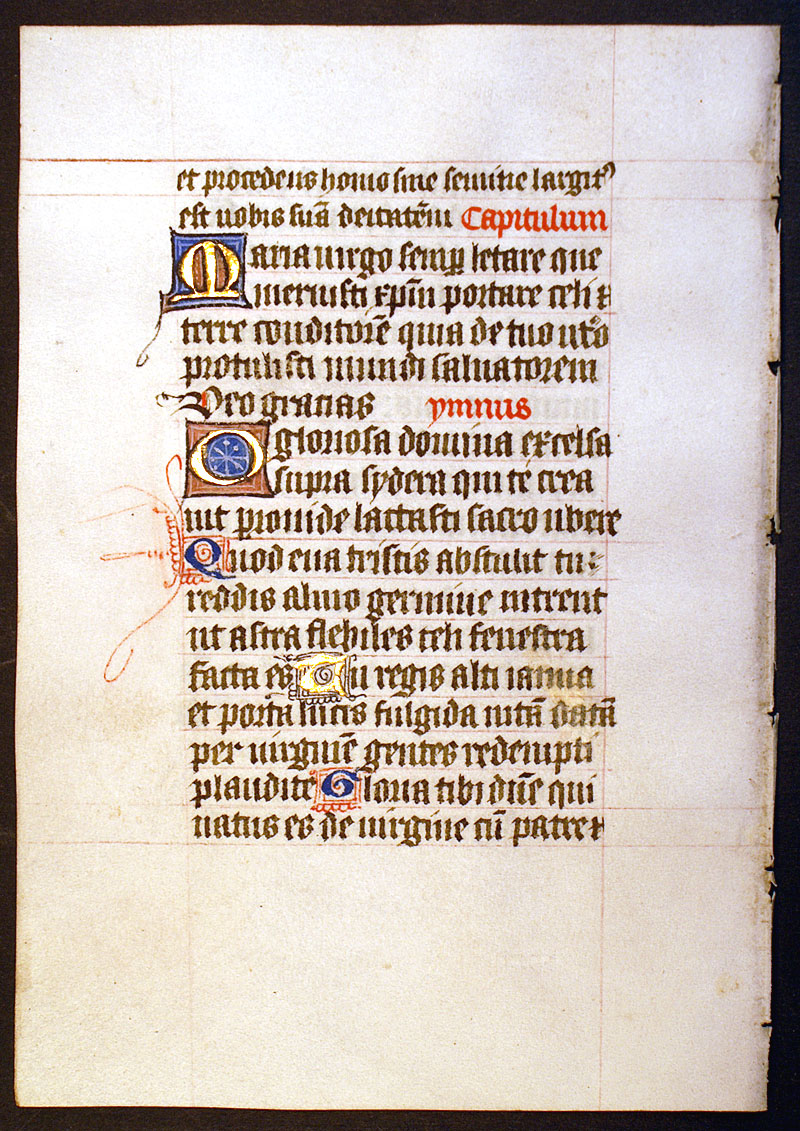 et procedens homo sine semine largitꝰ
est nobis suā deitatēm Capitulum
Maria uirgo semꝑ letare que
meruisti xp̄m portare celi ⁊
terre conditorē quia de tuo utͦo
protulisti mundi saluatorem
Deo gracias ymnus
O gloriosa domina excelsa
supra sydera qui te crea
uit ꝓuide lactasti sacro ubere
Quod eua tristis abstulit tu
reddis almo germine intrent
ut astra flebiles celi fenestra
facta es Tu regis alti ianua
et porta lucis fulgida uitā datā
per uirginē gentes redempti
plaudite Gloria tibi dn̄e qui
natus es de uirgine cū patre ⁊